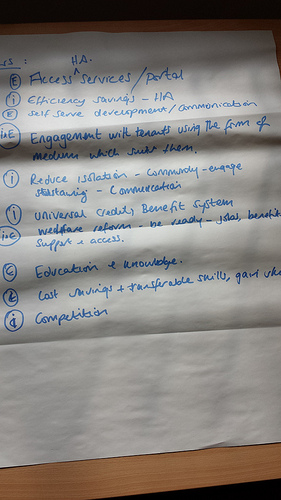 rs :
HA.
E Access ^ services / portal
i Efficiency savings - HA
E self serve development / communication
i+E Engagement with tenants using the form of
medium which suits them.
i Reduce isolation - community - engage
- Communication
i Universal Credit, Benefit System
i+E welfare reform - be ready - jobs, benefits
support + access.
Education + knowledge.
Cost savings + transferable skills, gain
i Competition